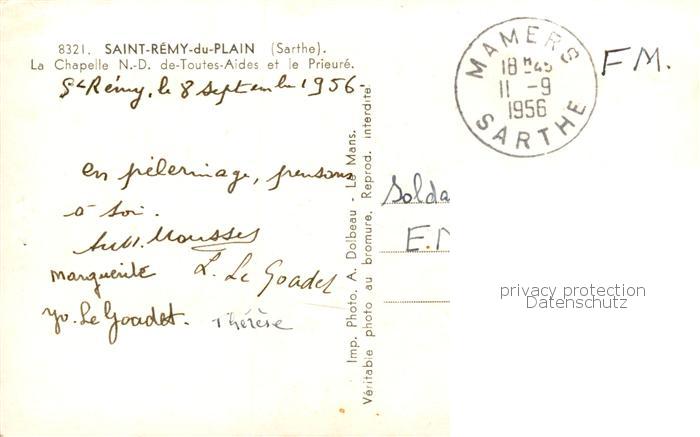 8321. SAINT-RÉMY-du-PLAIN (Sarthe).
La Chapelle N.-D. de-Toutes-Aides et le Prieuré.
St Rémy, le 8 septembre 1956-
en pèlerinage, pensons
à toi.
Mousses
Marguerite L. Le Goadet
yv. Le Goadet. Thérèse
Imp. Photo, A. Dolbeau - Le Mans.
Véritable photo au bromure, Reprod. interdite
MAMERS
18 H 45
11 -9
1956
SARTHE
F M.
Solda
E.
privacy protection
Datenschutz